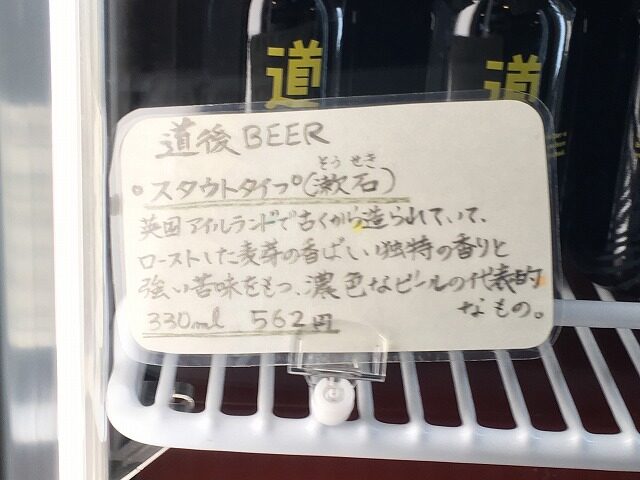 道
道
道後BEER
そうせき
•スタウトタイプ(漱石)
英国アイルランドで古くから造られていて、
ローストした麦芽の香ばしい独特の香りと
強い苦味をもつ、濃色なビールの代表的
なもの。
330ml 562円